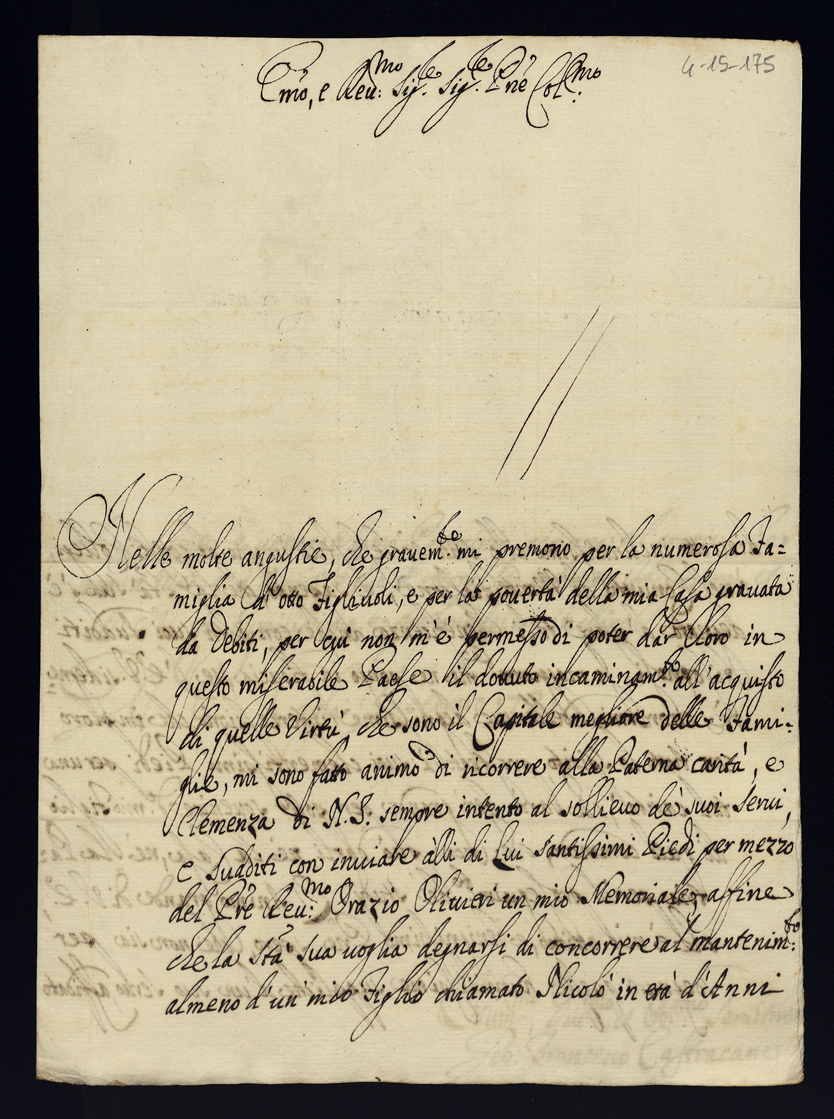 4-15-175
Emo, e Reu:mo Sig.re Sig.re Pne Col:mo
Nelle molte angustie, che grauem:te mi premono per la numerosa Fa=
miglia d'otto Figliuoli, e per la pouertà della mia Casa grauata
da Debiti, per cui non m'è permesso di poter dar Loro in
questo miserabile Paese il douuto incaminam:to all'acquisto
di quelle Virtù, che sono il Capitale megliore delle Fami=
glie, mi sono fatto animo di ricorrere alla Paterna carità, e
Clemenza di N. S: sempre intento al sollieuo de' suoi serui,
e sudditi con inuiare alli di Lui santissimi Piedi per mezzo
del Pre Reu:mo Orazio Oliuieri un mio Memoriale, affine
che la Stà sua uoglia degnarsi di concorrere al mantenim:to
almeno d'un' mio Figlio chiamato Nicolò in età d'Anni